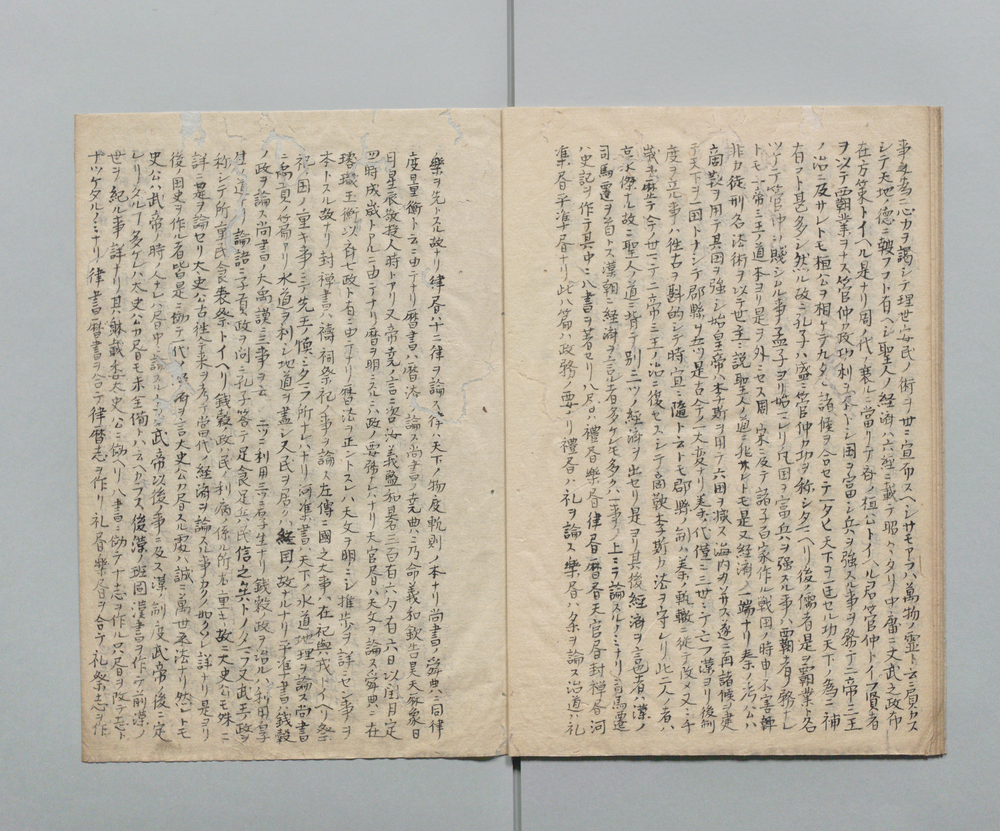 事ヲ以テ心力ヲ竭シテ理世安民ノ術ヲ廿ニ宣布スヘシサモアラハ萬物ノ霊ト云ニ負カス
シテ天地ノ徳ニ報フコト有ヘシ聖人ノ経済ハ六経ニ載テ昭々タリ中庸ニ文武之政布
在方策トイヘル是ナリ周ノ代ノ衰ルニ當リテ斉ノ桓公トイヘル君管仲トイフ賢者
ヲ以テ霸業ヲナス管仲カ功利ヲ ントシ国ヲ富シ兵ヲ強スル事ヲ務テ二帝三王
ノ治ニ及サレトモ桓公ヲ相ケテ九タヒ諸侯ヲ合セテ一タヒ天下ヲ正セル功天下ノ為ニ補
有コト甚多シ然ル故ニ孔子ハ盛ニ管仲カ功ヲ称シタマヘリ後ノ儒者是ヲ霸業ト名
ツケテ管仲ヲ賤シムル事孟子ヨリ始レリ凡国ヲ富シ兵ヲ強スル事ハ霸者ノ務ナレ
トモ二帝三王ノ道本ヨリ是ヲ外ニセス周ノ末ニ及テ諸子百家作ル戦国ノ時申不害韓
非カ徒刑名法術ヲ以テ世主ニ説聖人ノ道ニ非サレトモ是又経済ノ一端ナリ秦ノ孝公ハ
商鞅ヲ用テ其国ヲ強シ始皇帝ハ李斯ヲ用テ六国ヲ滅シ海内ヲ并ス遂ニ再諸侯ヲ建
テス天下ヲ一国トナシテ郡縣ヲ立ツ是古今ノ一大変ナリ秦ノ代僅ニ二世ニテ亡フ漢ヨリ後制
度ヲ立ル事ハ往古ヲ斟酌シテ時宜ニ随ト云トモ郡縣ノ制ハ秦ノ軌轍ニ徒テ改メス二千
歳ニ歴テ今ノ世マテ二帝三王ノ治ニ復セスシテ商鞅李斯カ法ヲ守レリ此二人ノ者ハ
豪傑ナル故ニ聖人ノ道ニ背テ別ニ一ツノ経済ヲ出セリ是ヨリ其後経済ヲ言者ハ漢ノ
司馬遷ヲ首トス漢朝ニ経済ヲ言ル者多ケレ共多クハ一事ノ上ニテ論スルノミナリ司馬遷
ハ史記ヲ作テ其中ニ八書ヲ著セリ八書ハ禮書樂書律書暦書天官書封禅書河
渠書平準書ナリ此八篇ハ政務ノ要ナリ禮書ハ礼ヲ論ス樂書ハ楽ヲ論ス治道ハ礼
樂ヲ先トスル故ナリ律書ハ十二律ヲ論ス律ハ天下ノ物度軌則ノ本ナリ尚書ノ舜典ニ同律
度量衡ト云ヘ由テナリ暦書ハ暦法ヲ論ス尚書ノ堯典ニ乃命羲和欽若昊天暦象日
月星辰敬授人時トアリ又帝堯ノ言ニ咨汝羲曁和朞三百有六旬有六日以閏月定
四時成歳トアルニ由テナリ暦ヲ明ニスルハ政ノ要務ナレハナリ天官書ハ天文ヲ論ス舜典ニ在
璿璣玉衡以斉七政ト有ニ由テナリ暦法ヲ正シントスレハ天文ヲ明ニシ推歩ヲ詳ニセン事ヲ
本トスル故ナリ封禅書ハ禱祠祭祀ノ事ヲ論ス左傳ニ國之大事ハ在祀與戎トイヘリ祭
祀ハ国ノ重キ事ニテ先王ノ慎ミタマフ所ナレハナリ河渠書ハ天下ノ水道地理ヲ論ス尚書
ニ禹貢ノ篇有リ水道ヲ利シ地道ヲ盡シ又民ヲ居クハ経国ノ故ナルナリ平準書ハ銭穀
ノ政ヲ論ス尚書ノ大禹謨ニ三事ヲ云 二ツニ利用三ツニ厚生ナリ銭穀政ヲ治ルハ利用厚
生ノ道ナリ論語ニ子貢政ヲ問ニ孔子答テ足食足兵ハ民信之矣トノタマフ又武王ノ政ヲ
称シテ所重民食喪祭トイヘリ銭穀ノ政ハ民ノ利病ノ係ル所尤重キ故ニ大史公モ殊ニ
詳ニ是ヲ論セリ大史公古往今来ヲ考テ當代ノ経済ヲ論スル事カクノ如ク詳ナリ是ヨリ
後ノ国史ヲ作ル者皆是ニ傚テ一代ノ政術ヲ言大史公カ書スル處ハ誠ニ萬世不易ノ法ナリ然レトモ
史公ハ武帝ノ時ノ人ナレハ書中ニ論スルトコロ武帝以後ノ事ニ及ス漢ノ制度武帝ノ後ニ定
レリシタルイ多ケレハ大史公カ書モ未全備ハ云ヘカラス後漢ノ班固漢書ヲ作テ前漢ノ一
世ヲ紀ル事詳ナリ其賦載季大史公ニ傚ヘリ八書ニ傚テ十志ヲ作ル只書ヲ改テ志ト
ナツケタルノミナリ律書暦書ヲ合テ律暦志ヲ作リ礼書樂書ヲ合テ礼樂志ヲ作